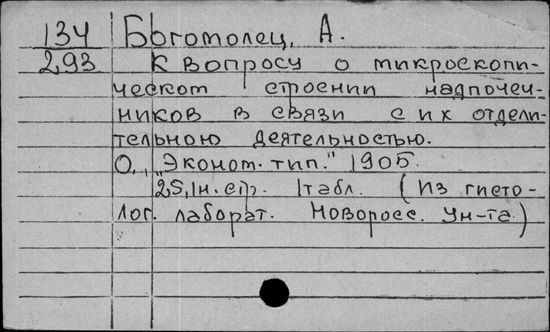 134 Богомолец, А.
293 К вопросу о микроскопи-
ческом строении надпочеч-
ников в связи с их отдели-
тельною деятельностью.
О., "Эконом. тип." 1905.
25, 1н. стр. 1 табл. (Из гисто-
лог. лаборат. Новоросс. Ун-та)